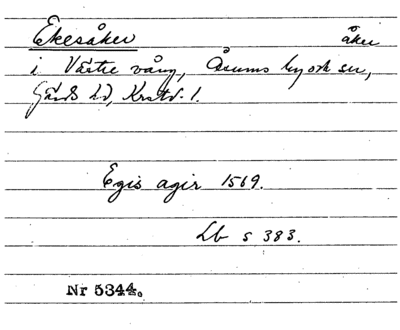 Ekesåker åker
i Västre vång, Åsums by och sn,
Gärds hd, Krstds l.
Egis agir 1569.
Lb s 383.
Nr 5344.